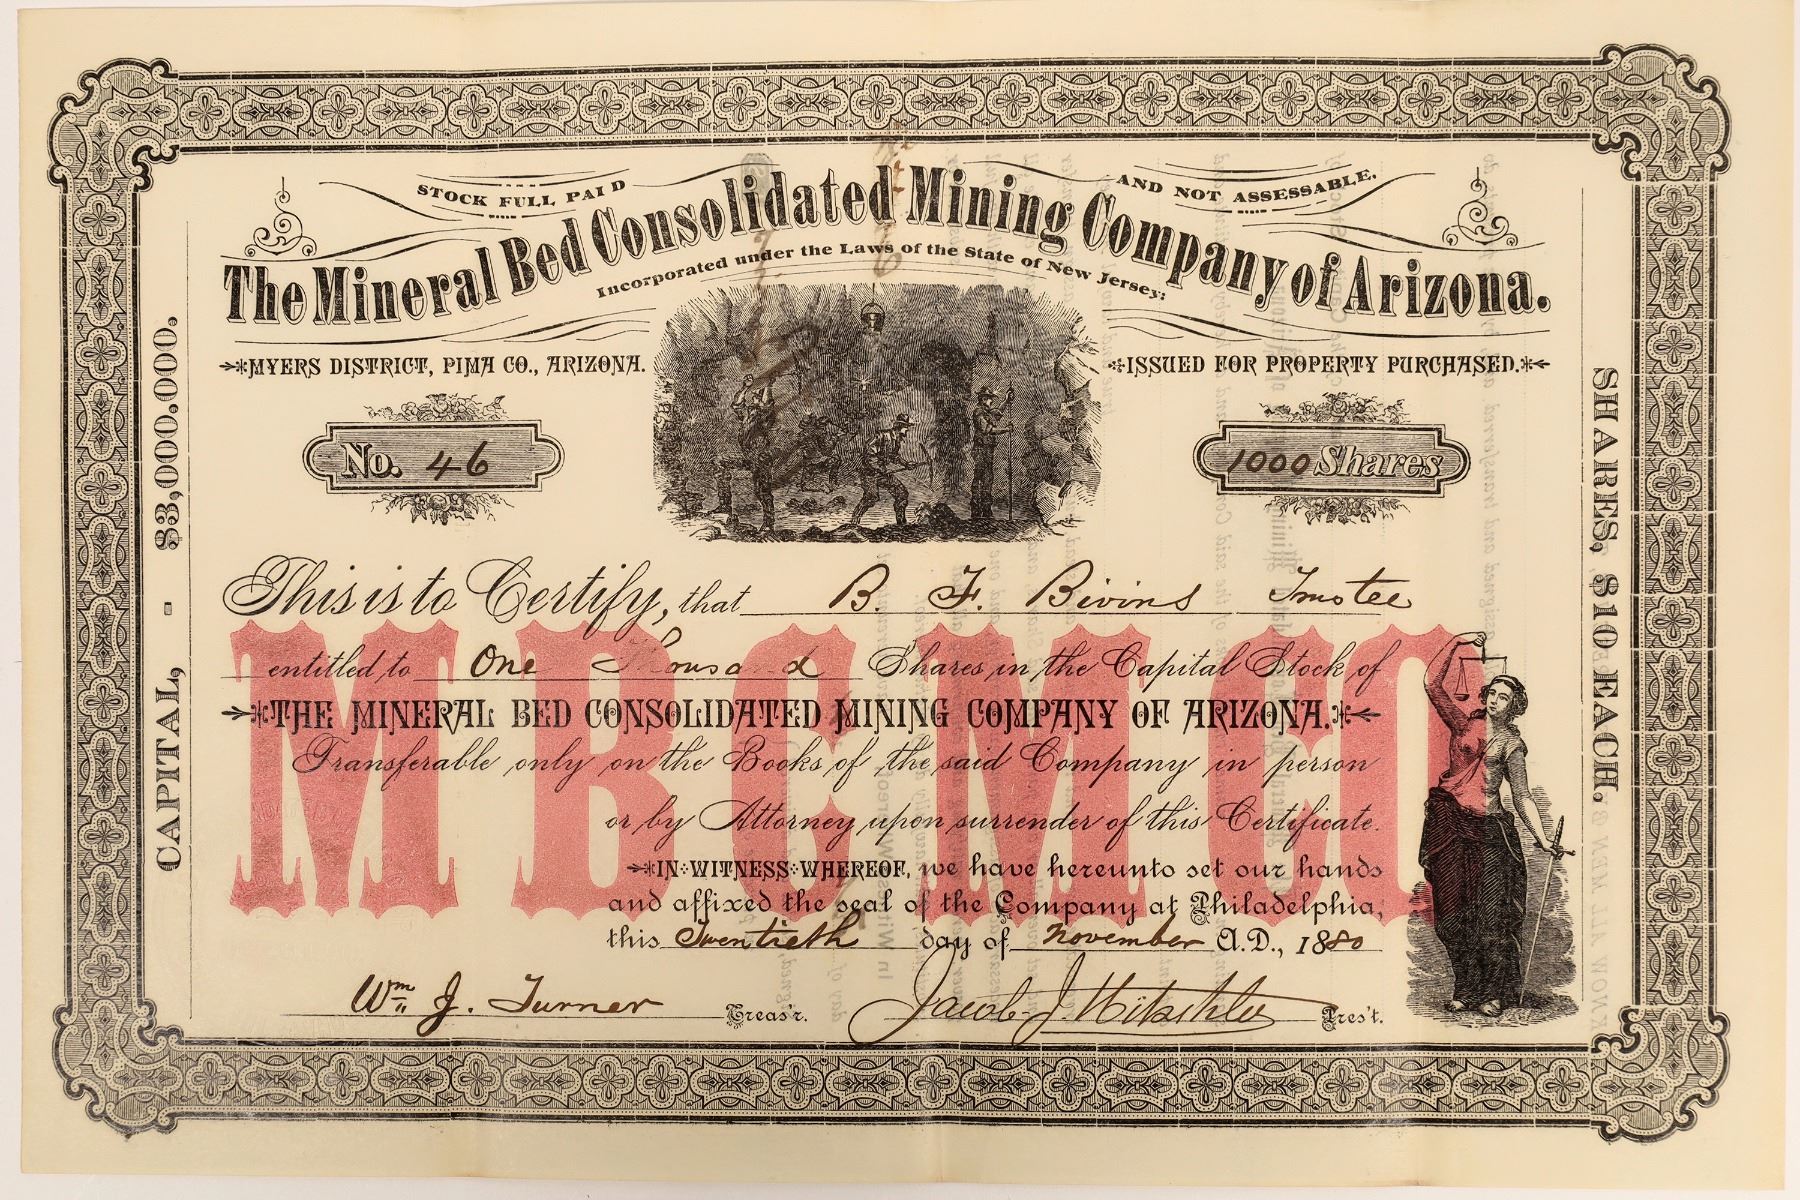 STOCK FULL PAID
AND NOT ASSESSABLE.
The Mineral Bed Consolidated Mining Company of Arizona.
Incorporated under the Laws of the State of New Jersey:
MYERS DISTRICT, PIMA CO., ARIZONA.
ISSUED FOR PROPERTY PURCHASED.
No. 46
1000 Shares
CAPITAL, - $3,000,000.
SHARES, $10 EACH.
This is to Certify, that B. F. Bivins Trustee
entitled to One Thousand Shares in the Capital Stock of
THE MINERAL BED CONSOLIDATED MINING COMPANY OF ARIZONA.
MBCMCO
Transferable only on the Books of the said Company in person
or by Attorney upon surrender of this Certificate.
IN WITNESS WHEREOF, we have hereunto set our hands
and affixed the seal of the Company at Philadelphia,
this Twentieth day of November A.D., 1880
Wm J. Turner Treas'r.
Jacob J Hitschler Pres't.